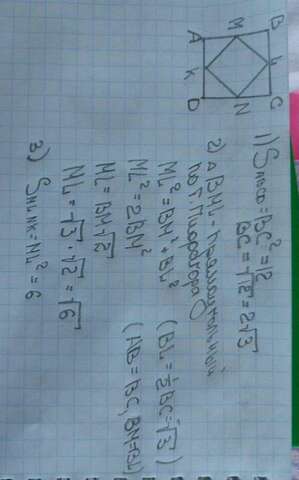 B
M
A
L
K
C
N
D
1) S_ABCD = BC² = 12
BC = √12 = 2√3
2) △ BML - прямоугольный
по т. Пифагора
ML² = BM² + BL² (BL = ½BC = √3)
ML² = 2BM² (AB = BC, BM = BL)
ML = BM√2
ML = √3 · √2 = √6
3) S_MLNK = ML² = 6